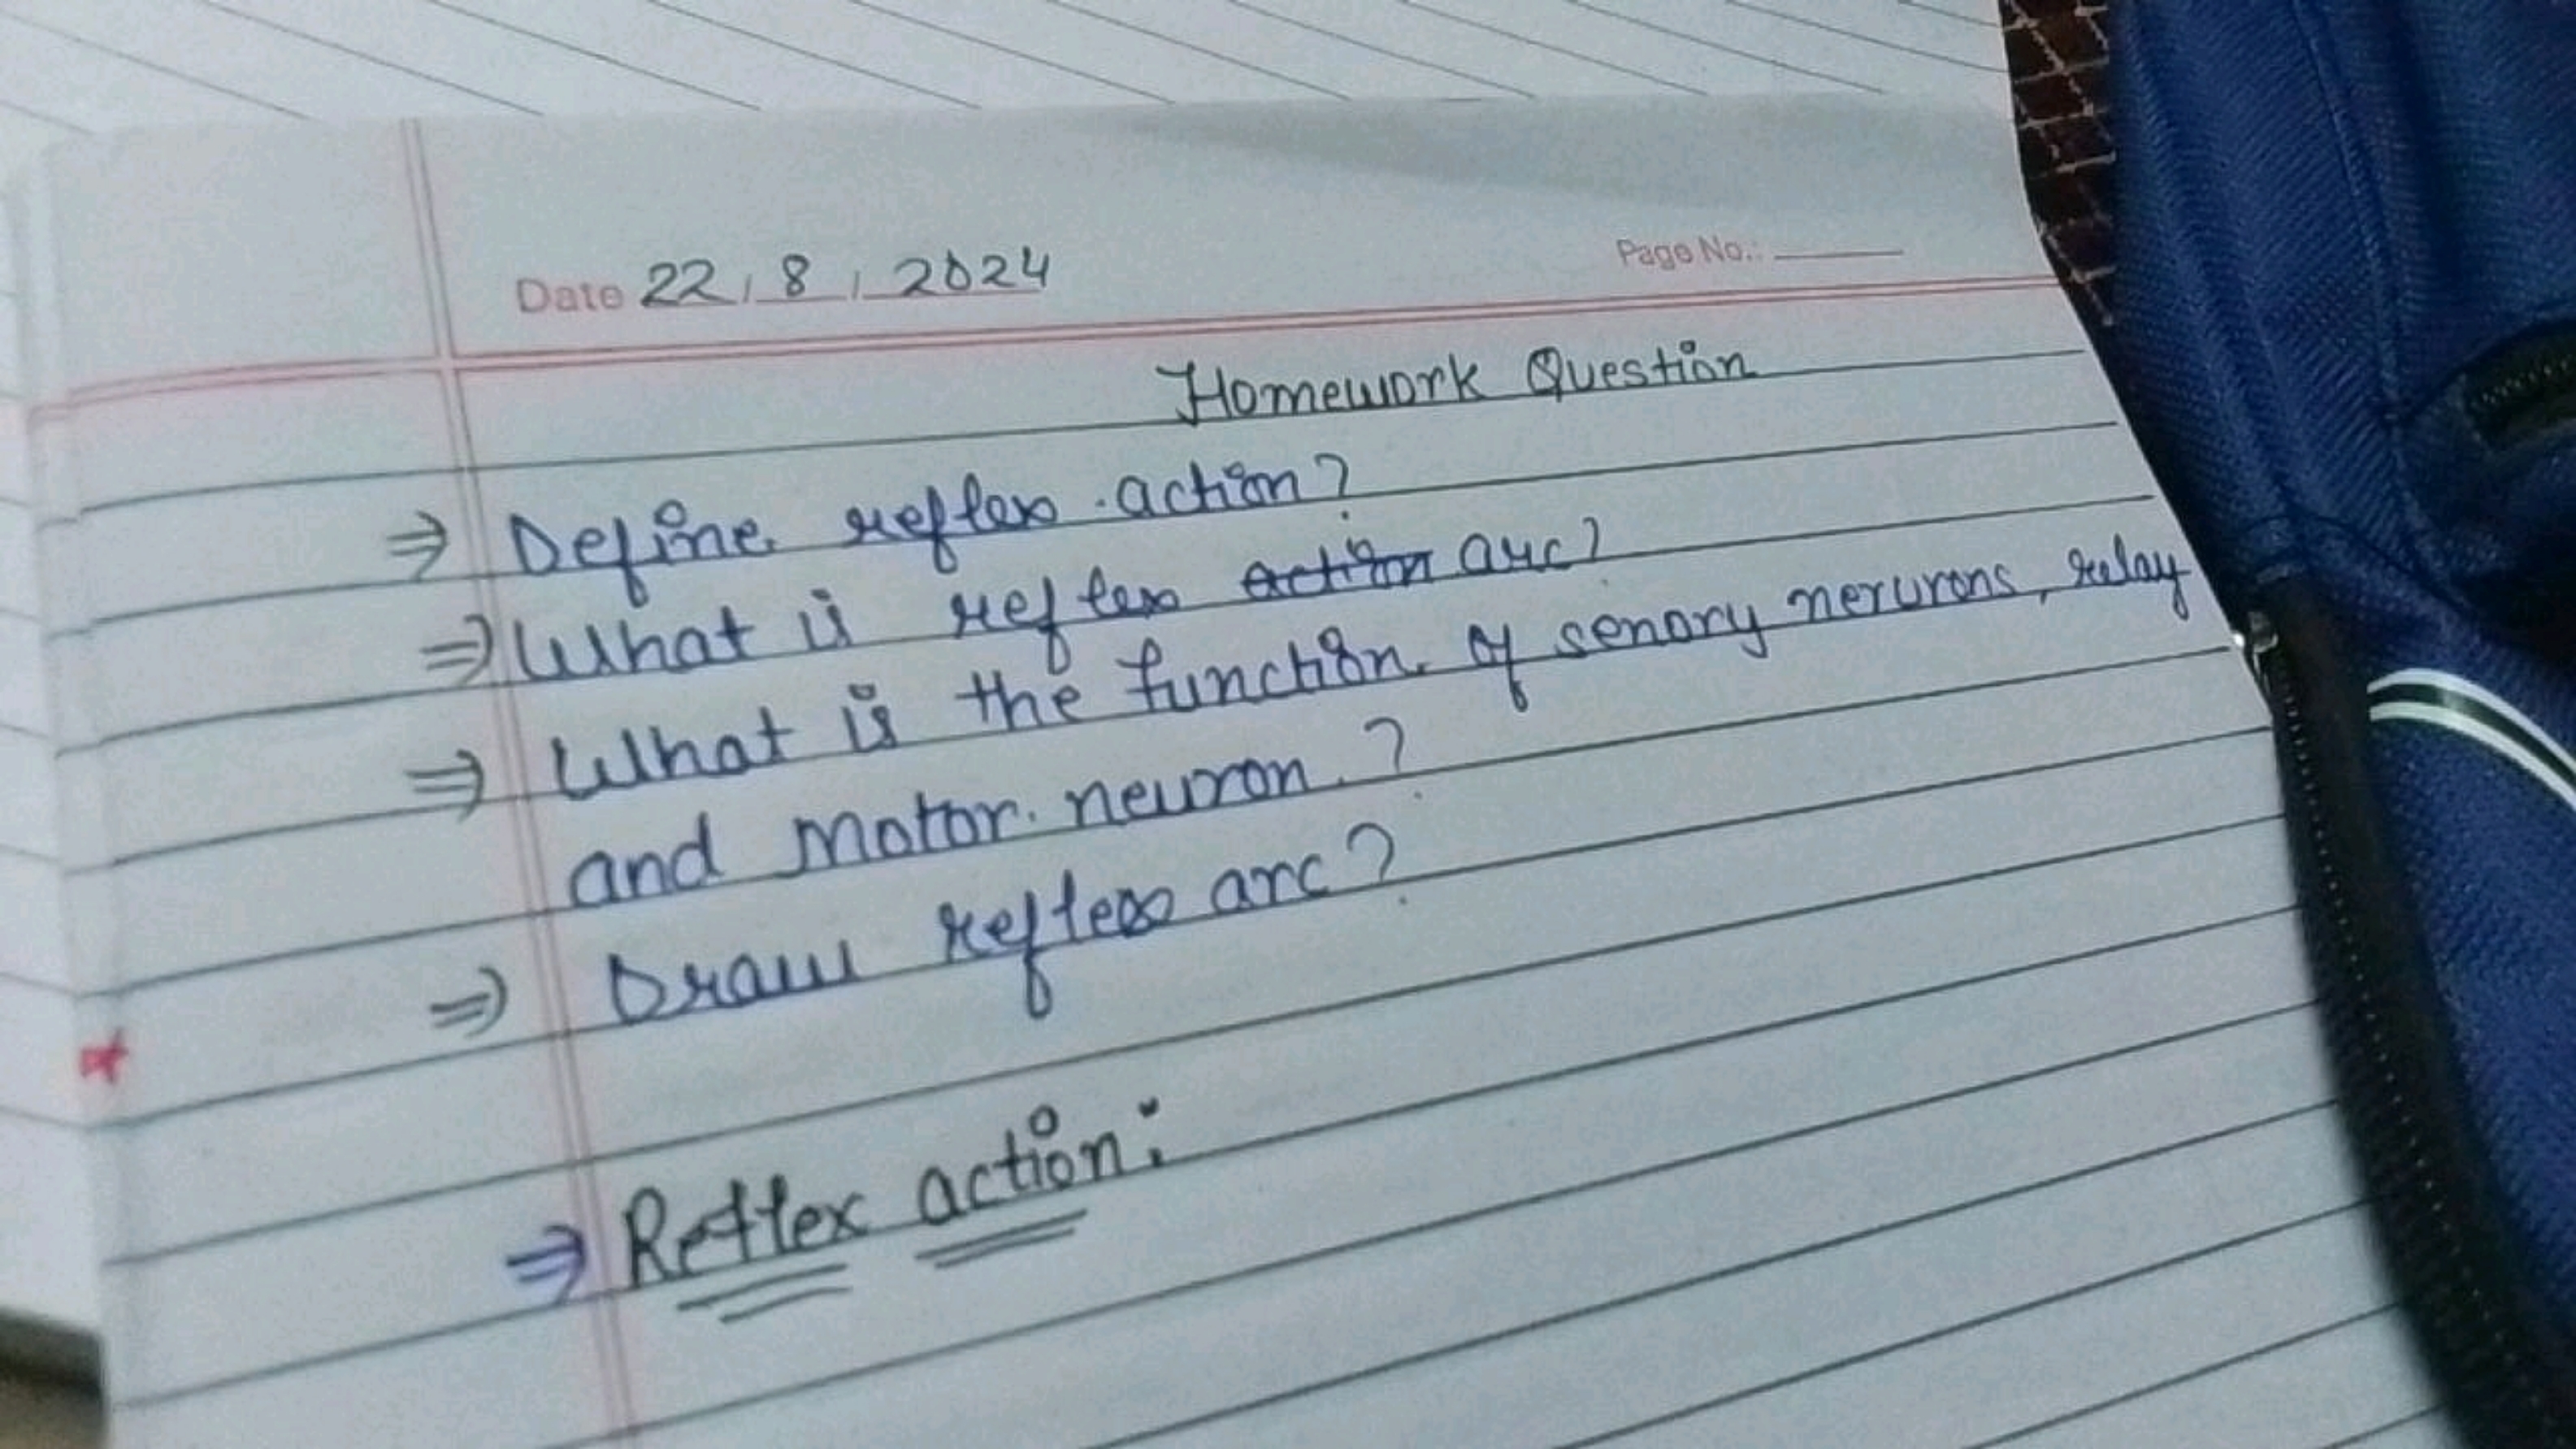 Date 22/8/2024
Page No.:
Homework Question
⇒ Define reflex action?
⇒ What is reflex ~~action~~ arc?
⇒ What is the function of senory nerurons, relay
and motor neuron?
⇒ Draw reflex arc?
⇒ Reflex action: